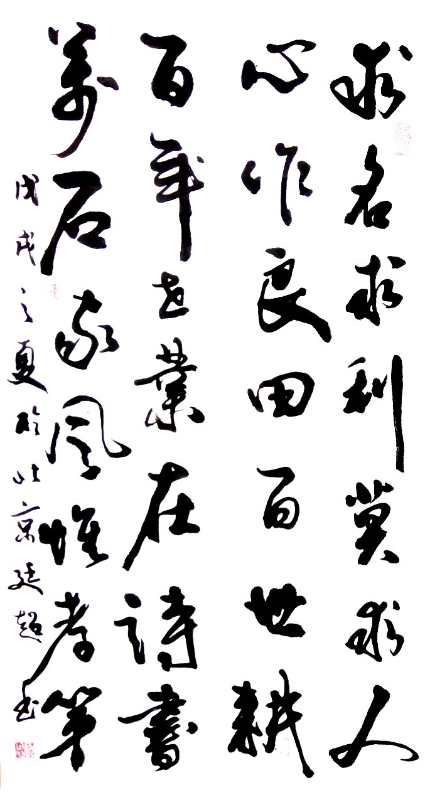 求名求利莫求人
心作良田百世耕
百年世業在詩書
萬石家風惟孝第
戊戌之夏於北京廷超書